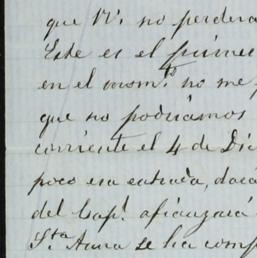 que V. no perdera
Este es el primer
en el mom.to no me p
que no podriamos
corriente el 4 de Dic
poco esa entrada, da
del Cap.l afianzará
S.ta Anna se ha comp